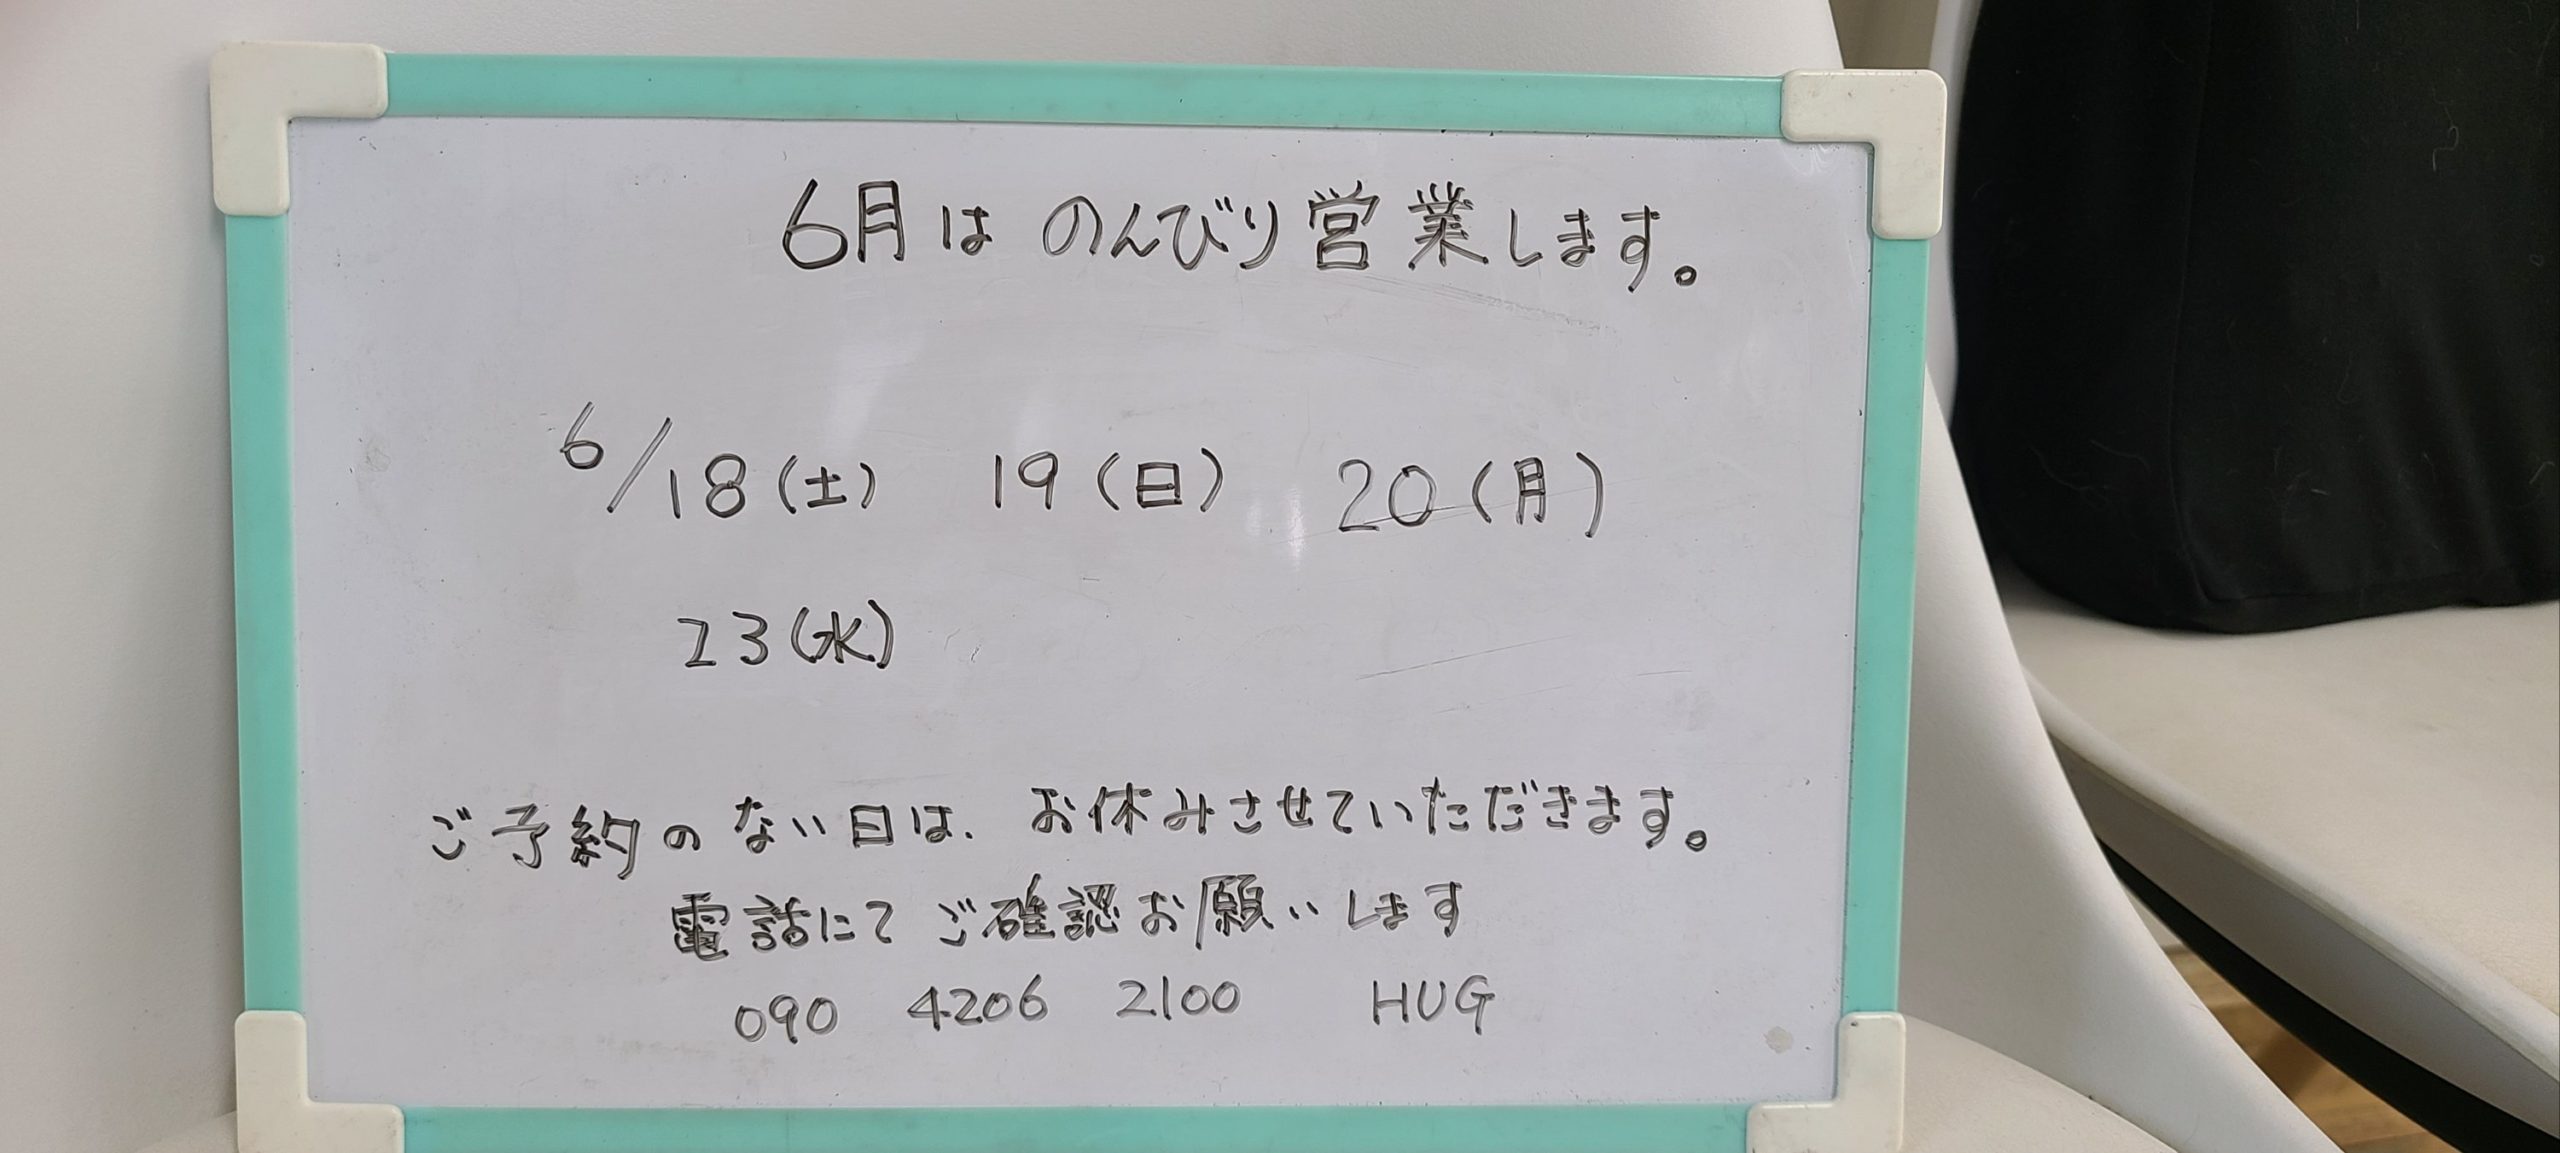 6月は のんびり営業します。
6/18(土) 19(日) 20(月)
23(水)
ご予約の ない日は、お休みさせていただきます。
電話にて ご確認お願いします
090 4206 2100 HUG